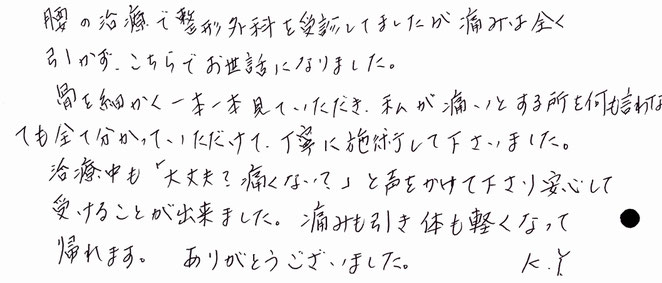 腰の治療で整形外科を受診してましたが痛みは全く
引かず、こちらでお世話になりました。
骨を細かく一本一本見ていただき、私が痛いとする所を何も言わな
ても全て分かっていただけて、丁寧に施術して下さいました。
治療中も「大丈夫？痛くない？」と声をかけて下さり安心して
受けることが出来ました。痛みも引き体も軽くなって
帰れます。 ありがとうございました。 K.Y